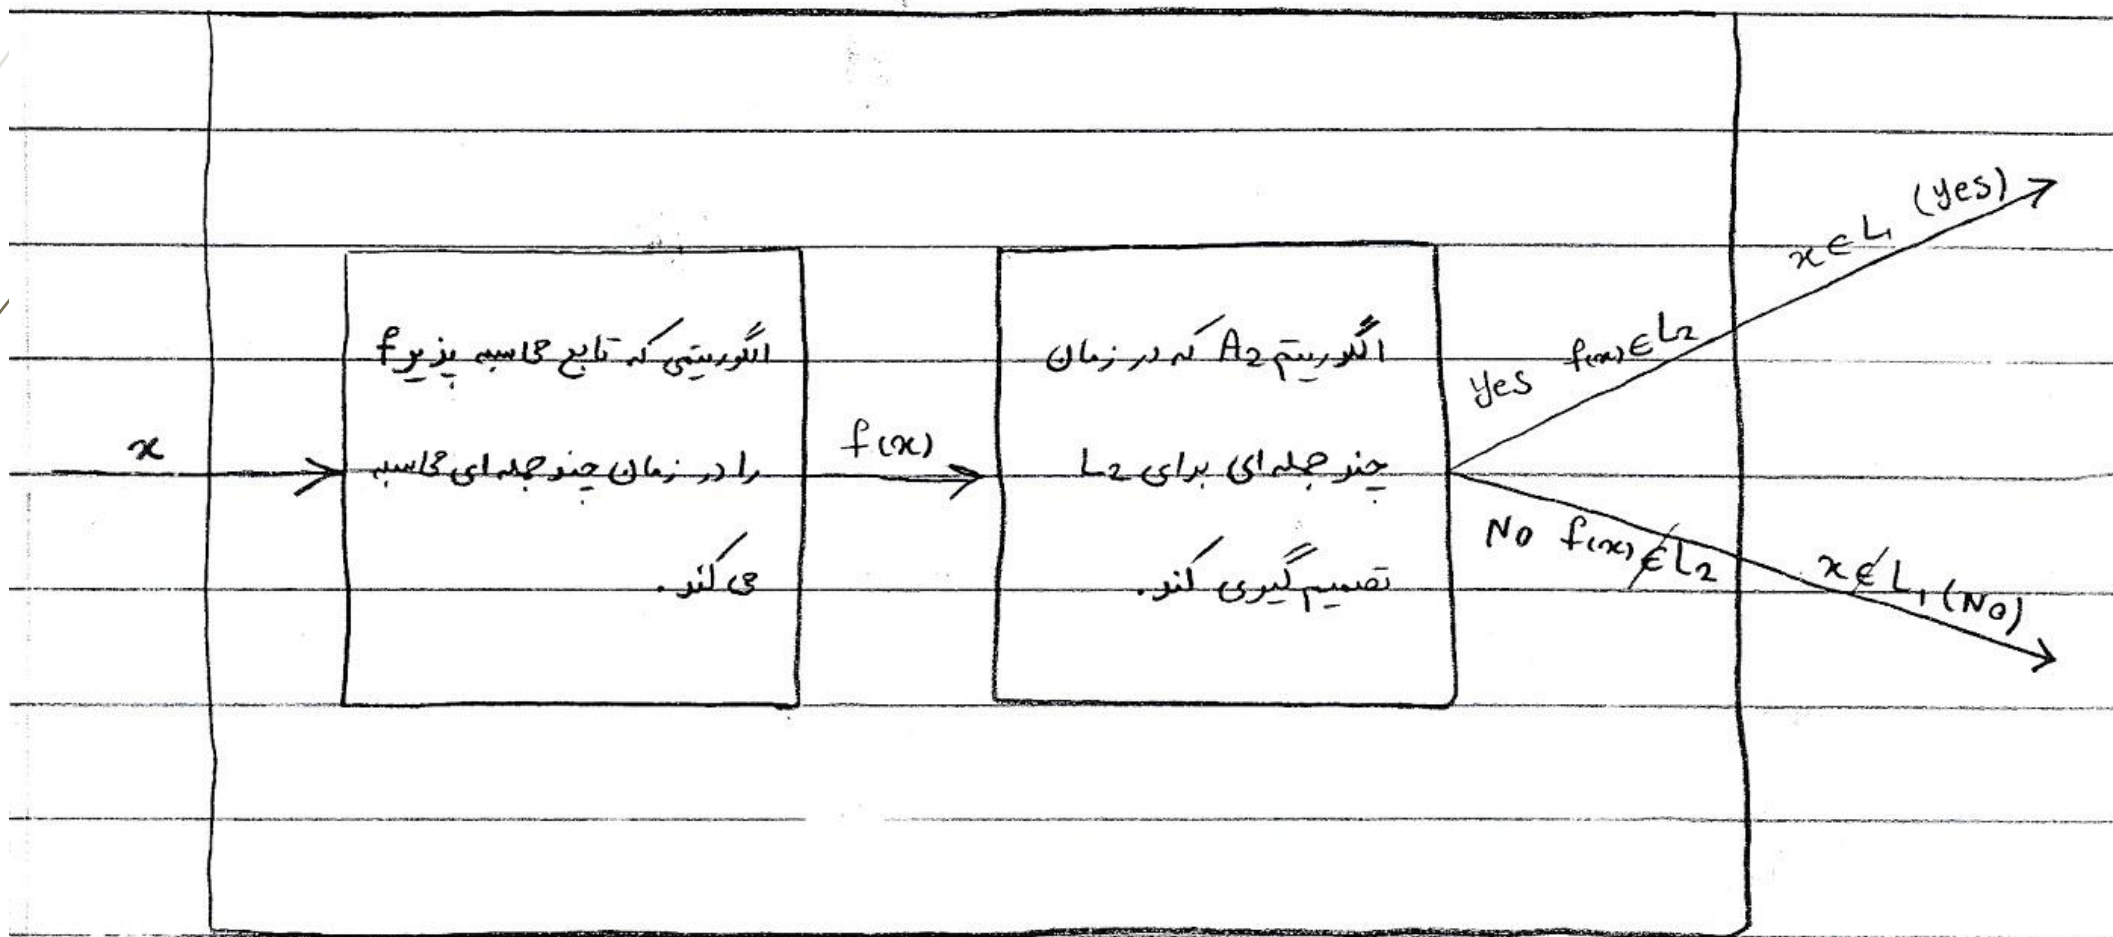 x
الگوریتمی که تابع محاسبه پذیر f
را در زمان چند جمله ای محاسبه
می کند.
f(x)
الگوریتم A2 که در زمان
چند جمله ای برای L2
تصمیم گیری کند.
yes f(x) ∈ L2
x ∈ L1 (yes)
No f(x) ∉ L2
x ∉ L1 (No)